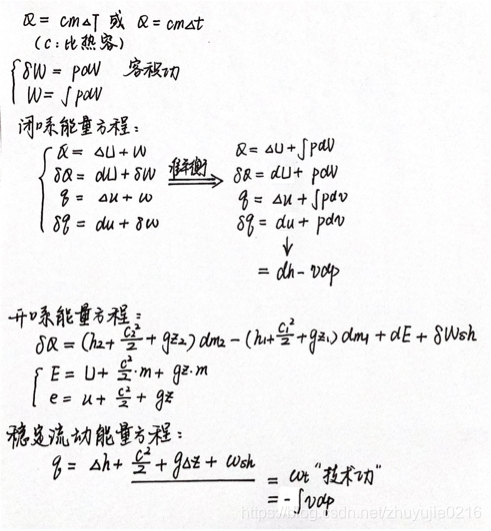 Q = cm△T 或 Q = cm△t
(c:比热容)
δW = pdV 容积功
W = ∫pdV
闭口系能量方程:
Q = △U + W
δQ = dU + δW
q = △u + w
δq = du + δw
准平衡
Q = △U + ∫pdV
δQ = dU + pdV
q = △u + ∫pdv
δq = du + pdv
↓
= dh - vdp
开口系能量方程:
δQ = (h₂ + c₂²/2 + gz₂) dm₂ - (h₁ + c₁²/2 + gz₁) dm₁ + dE + δWsh
E = U + c²/2·m + gz·m
e = u + c²/2 + gz
稳定流动能量方程:
q = △h + c²/2 + g△z + wsh
= wt "技术功"
= -∫vdp
https://blog.csdn.net/zhuyujia0216